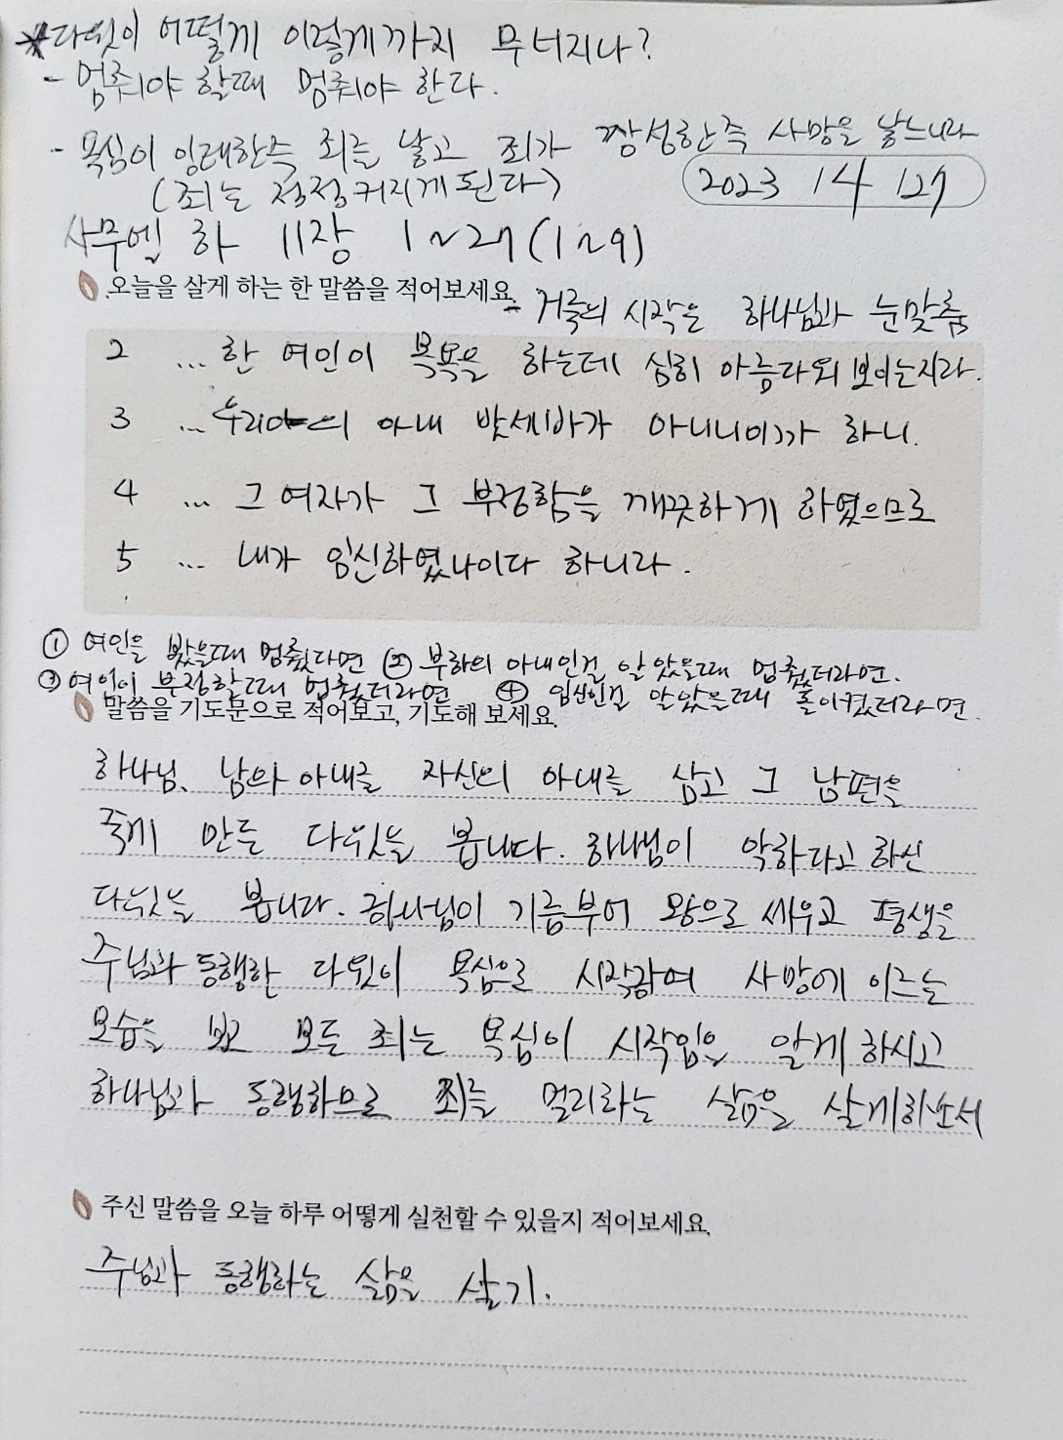 *다윗이 어떻게 이렇게까지 무너지나?
- 멈춰야 할때 멈춰야 한다.
- 욕심이 잉태한즉 죄를 낳고 죄가 짱성한즉 사망을 낳느니라
(죄는 점점 커지게 된다)
2023 / 4 / 27
사무엘 하 11장 1~27(1~9)
오늘을 살게 하는 한 말씀을 적어보세요.
- 거룩의 시작은 하나님과 눈맞춤
2 ... 한 여인이 목욕을 하는데 심히 아름다워 보이는지라.
3 ... 우리아의 아내 밧세바가 아니니이가 하니.
4 ... 그 여자가 그 부정함을 깨끗하게 하였으므로
5 ... 내가 임신하였나이다 하니라.
① 여인을 봤을때 멈췄다면 ② 부하의 아내인걸 알았을때 멈췄더라면.
③ 여인이 부정할때 멈췄더라면 ④ 임신인걸 알았을때 돌이켰더라면.
말씀을 기도문으로 적어보고, 기도해 보세요.
하나님, 남의 아내를 자신의 아내를 삼고 그 남편을
죽게 만든 다윗을 봅니다. 하나님이 악하다고 하신
다윗을 봅니다. 하나님이 기름부어 왕으로 세우고 평생을
주님과 동행한 다윗이 욕심으로 시작하여 사망에 이르는
모습을 보고 모든 죄는 욕심이 시작임을 알게 하시고
하나님과 동행하므로 죄를 멀리하는 삶을 살게하소서
주신 말씀을 오늘 하루 어떻게 실천할 수 있을지 적어보세요.
주님과 동행하는 삶을 살기.